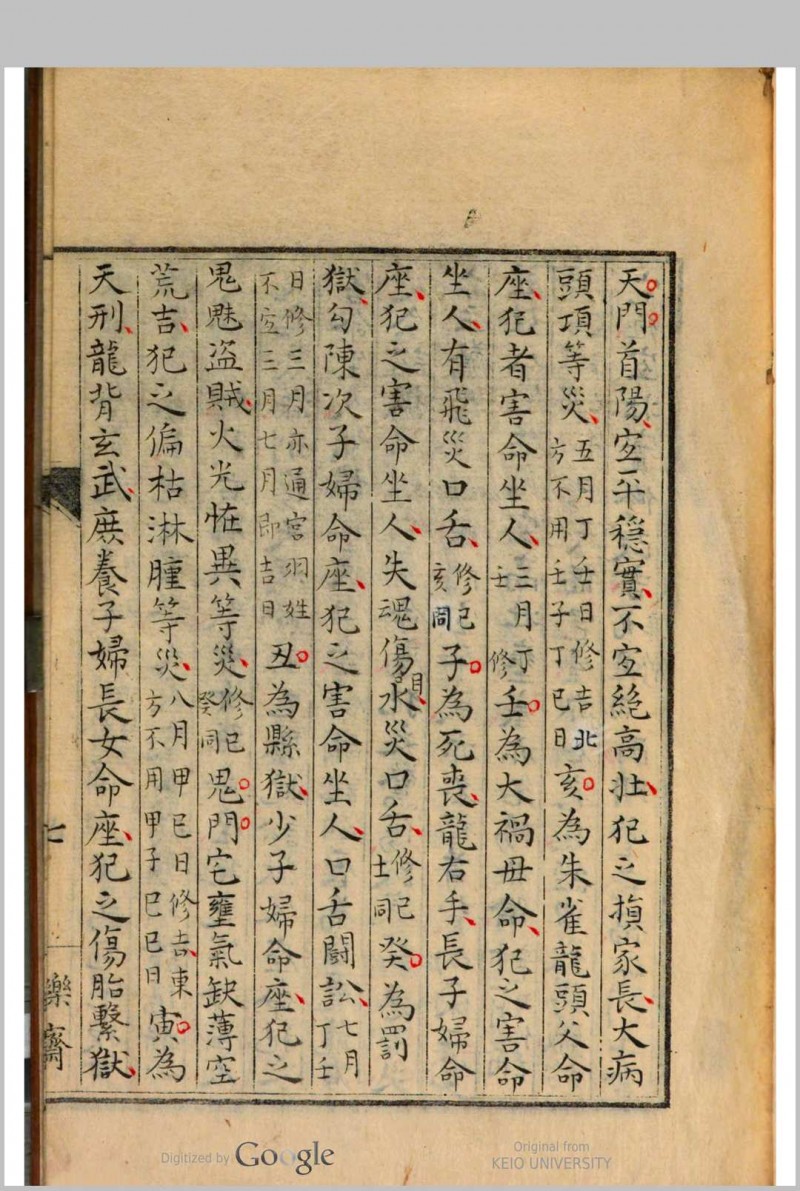 天門首陽宜平穩實不宜絕高壯犯之損家長大病
頭項等災五月丁壬日修吉北方不用壬子丁巳日亥為朱雀龍頭父命
座犯者害命坐人三月丁壬修壬為大禍母命犯之害命
坐人有飛災口舌修已亥同子為死喪龍右手長子婦命
座犯之害命坐人失魂傷目水災口舌修已土同癸為罰
獄勾陳次子婦命座犯之害命坐人口舌鬪訟七月丁壬
日修三月亦通宮羽姓不宜三月七月即吉日丑為縣獄少子婦命座犯之
鬼魅盜賊火光怪異等災修已癸同鬼門宅壅氣缺薄空
荒吉犯之偏枯淋腫等災八月甲巳日修吉東方不用甲子巳巳日寅為
天刑龍背玄武庶養子婦長女命座犯之傷胎繫獄
七
樂齋
Digitized by Google
Original from
KEIO UNIVERSITY